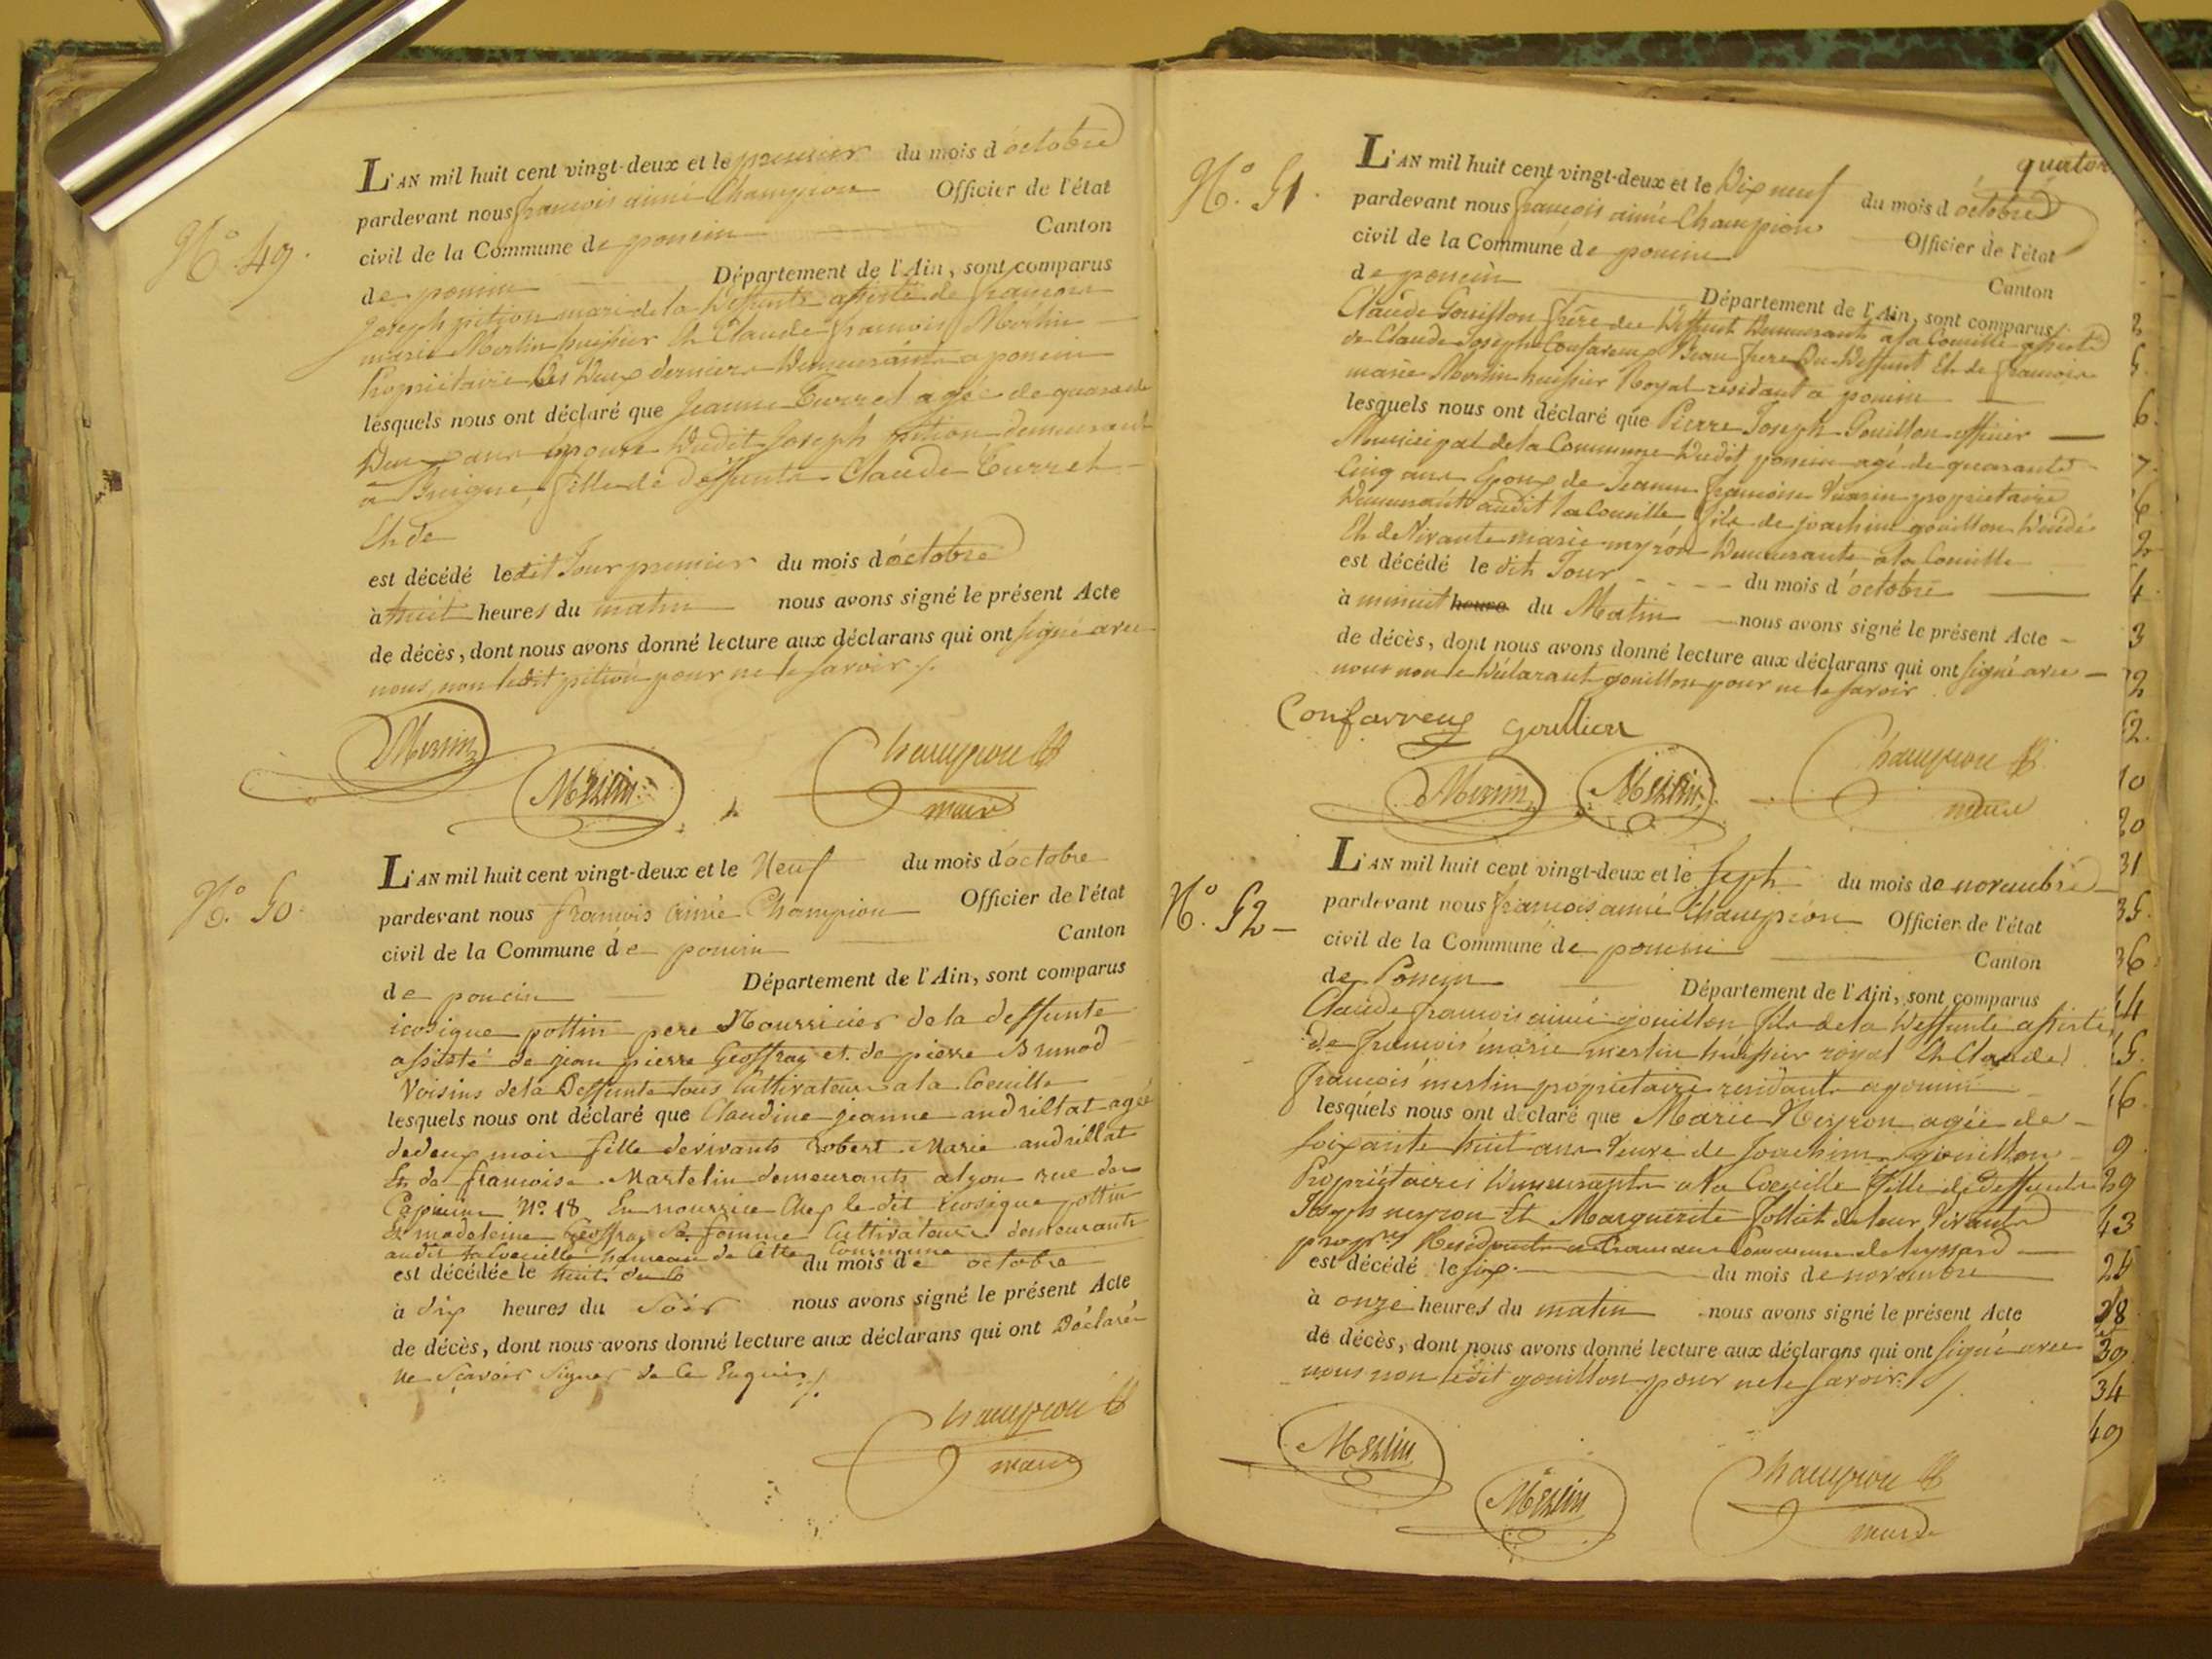 N.° 49.
L'AN mil huit cent vingt-deux et le premier du mois d'octobre
pardevant nous françois aimé Champion Officier de l'état
civil de la Commune de poncin Canton
de poncin Département de l'Ain, sont comparus
Joseph pition mari de la deffunte assisté de françois
marie Merlin huissier Et Claude françois Merlin
Propriétaire les deux derniers demeurants a poncin
lesquels nous ont déclaré que Jeanne Turrel agée de quarante
deux ans épouse dudit Joseph pition demeurant
a fille de deffunts Claude Turrel
Et de
est décédé ledit Jour premier du mois d'octobre
à huit heures du matin nous avons signé le présent Acte
de décès, dont nous avons donné lecture aux déclarans qui ont signé avec
nous non ledit pition pour ne le savoir
Merlin
Merlin
Champion
maire
N.° 50.
L'AN mil huit cent vingt-deux et le Neuf du mois d'octobre
pardevant nous françois aimé Champion Officier de l'état
civil de la Commune de poncin Canton
de poncin Département de l'Ain, sont comparus
pottin pere Nourricier de la deffunte
assisté de jean pierre Geoffray et de pierre Brunod
Voisins de la Deffunte tous Cultivateurs a la Coeuille
lesquels nous ont déclaré que Claudine jeanne andrillat agée
de deux mois fille de vivants robert Marie andrillat
Et de francoise Martelin demeurants alyon rue des
Capucins N.° 18 En nourrice Chez le dit pottin
Et madeleine Geoffray Sa femme Cultivateurs demeurants
audit la Coeuille hameau de Cette Commune
est décédée le huit de ce du mois de octobre
à dix heures du Soir nous avons signé le présent Acte
de décès, dont nous avons donné lecture aux déclarans qui ont Déclaré
ne Scavoir Signer de Ce Enquis
Champion
maire
quator
N.° 51.
L'AN mil huit cent vingt-deux et le Dix neuf du mois d'octobre
pardevant nous françois aimé Champion Officier de l'état
civil de la Commune de poncin Canton
de poncin Département de l'Ain, sont comparus
Claude Gouillon frère du deffunt demeurant a la Coeuille assisté
de Claude Joseph Confavreux Beau frere du deffunt Et de françois
marie Merlin huissier Royal résidant a poncin
lesquels nous ont déclaré que Pierre Joseph Gouillon officier
Municipal de la Commune dudit poncin agé de quarante
Cinq ans Epoux de Jeanne françoise propriétaire
demeurant audit la Coeuille fils de joachim gouillon décédé
Et de Vivante marie myron demeurante a la Coeuille
est décédé le dit Jour du mois d'octobre
à minuit heure du Matin nous avons signé le présent Acte
de décès, dont nous avons donné lecture aux déclarans qui ont signé avec
nous non le déclarant gouillon pour ne le savoir
Confavreux gouillion
Merlin
Merlin
Champion
maire
N.° 52
L'AN mil huit cent vingt-deux et le sept du mois de novembre
pardevant nous françois aimé Champion Officier de l'état
civil de la Commune de poncin Canton
de Poncin Département de l'Ain, sont comparus
Claude françois aimé gouillon fils de la deffunte assisté
de françois marie merlin huissier royal Et Claude
françois merlin propriétaire residants a poncin
lesquels nous ont déclaré que Marie Neyron agée de
soixante huit ans Veuve de Joachim gouillon
Propriétaires demeurants a la Coeuille fille de deffunts
Joseph neyron Et Marguerite de leur vivants
Commune de leyssard
est décédé le six du mois de novembre
à onze heures du matin nous avons signé le présent Acte
de décès, dont nous avons donné lecture aux déclarans qui ont signé avec
nous non ledit gouillon pour ne le savoir
Merlin
Merlin
Champion
maire
6
7
6
2
4
3
10
20
31
35
36
44
16
9
29
43
28
39
34
49